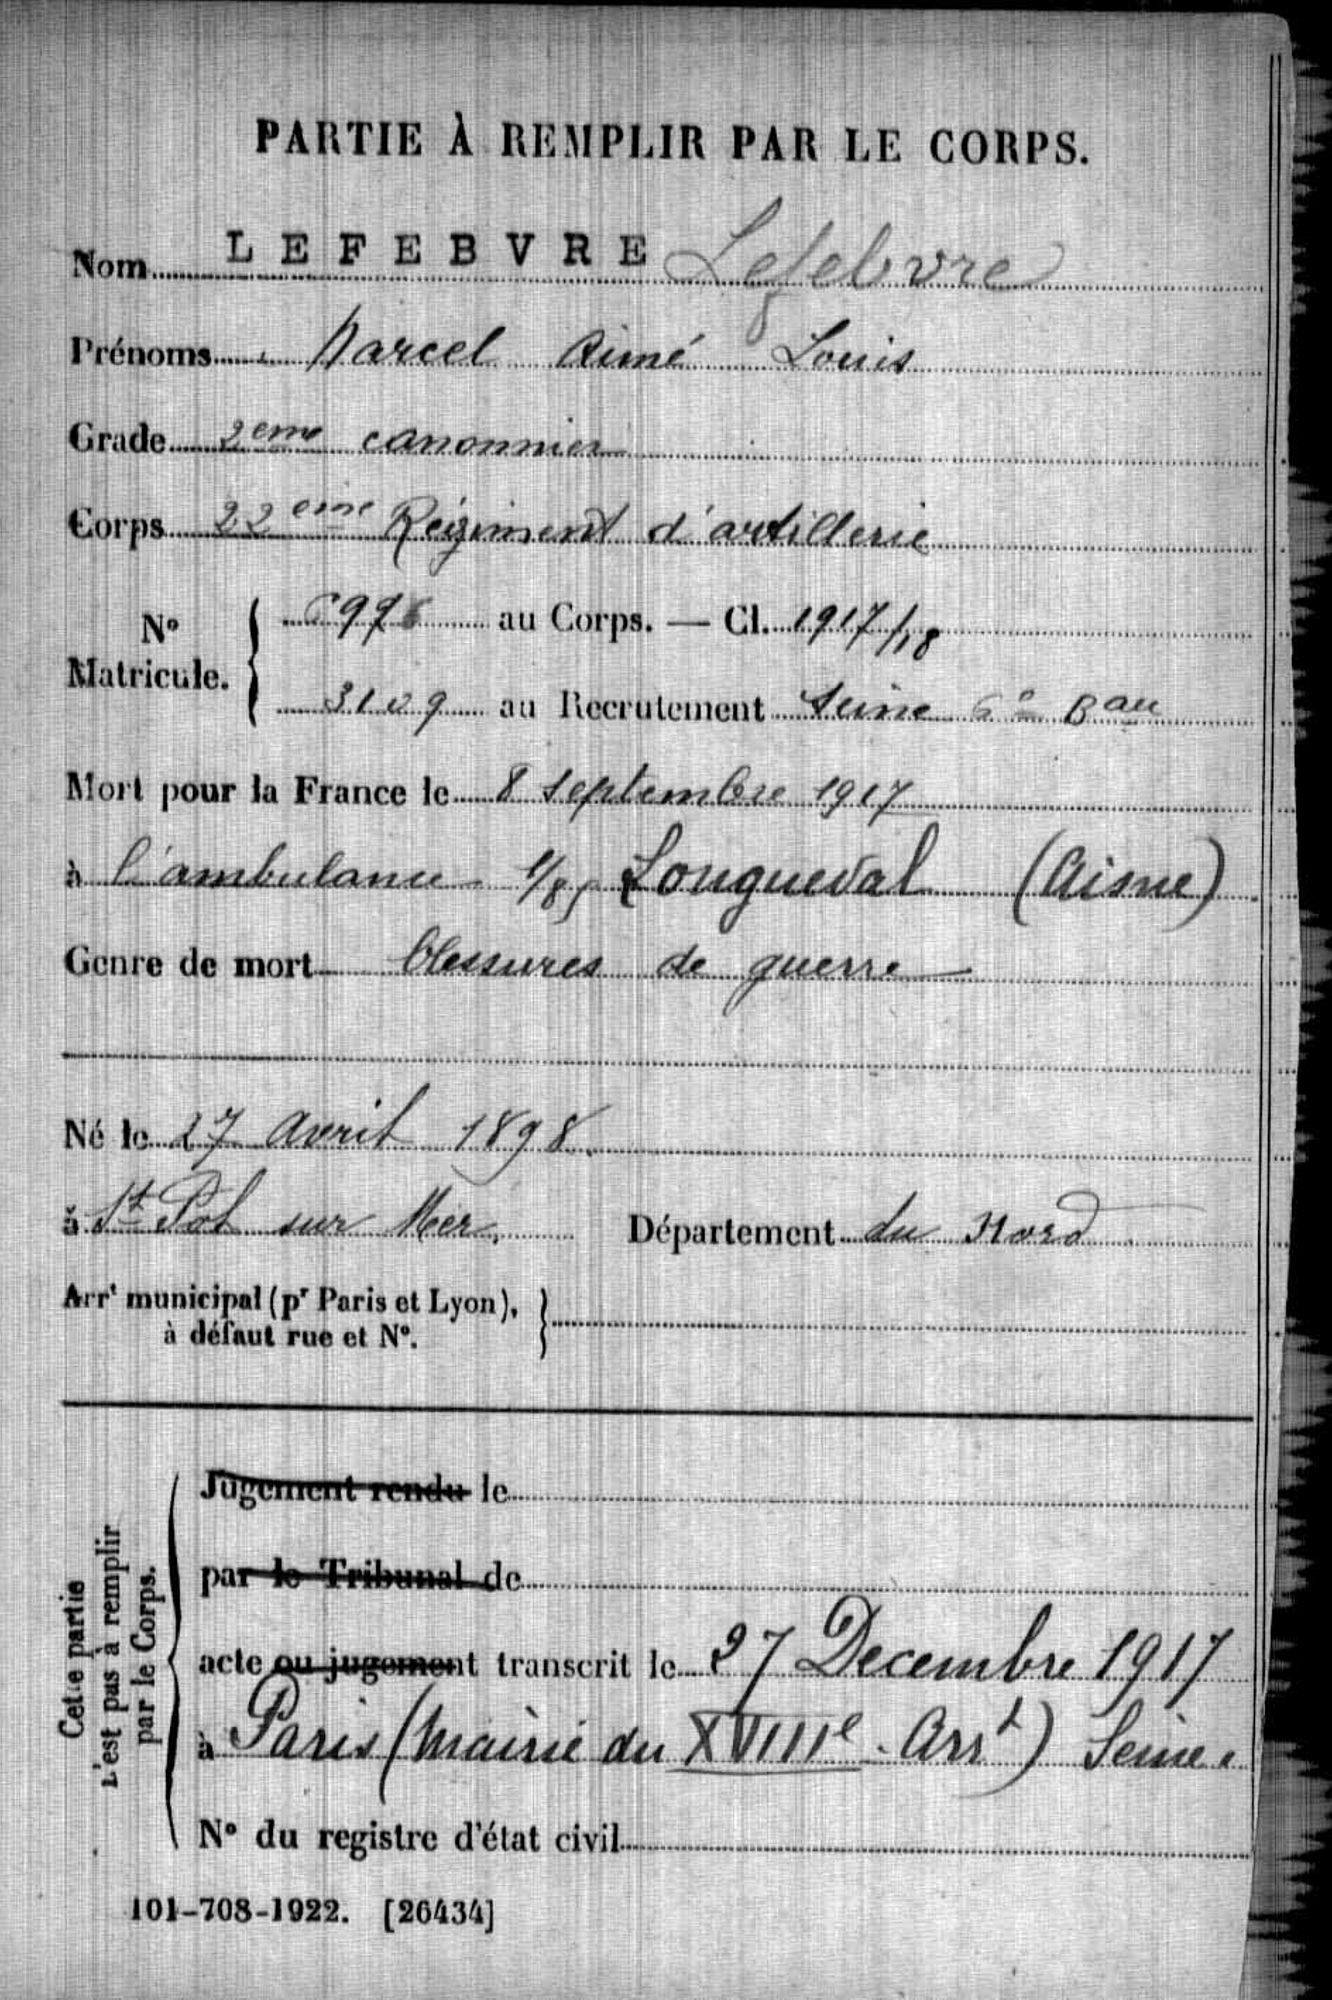 PARTIE À REMPLIR PAR LE CORPS.
Nom LEFEBVRE Lefebvre
Prénoms Marcel Aimé Louis
Grade 2eme canonnier
Corps 22eme Régiment d'artillerie
N° Matricule. au Corps. — Cl. 1917/18
3109 au Recrutement Seine 6e Bau
Mort pour la France le 8 septembre 1917
à l'ambulance 1/85 Longueval (Aisne)
Genre de mort blessures de guerre
Né le 27 Avril 1898.
à St Pol sur Mer. Département du Nord
Arrt municipal (pr Paris et Lyon),
à défaut rue et N°.
Cette partie
n'est pas à remplir
par le Corps.
Jugement rendu le
par le Tribunal de
acte ou jugement transcrit le 27 Decembre 1917
à Paris (Mairie du XVIIIe Arrt) Seine.
N° du registre d'état civil
101-708-1922. [26434]